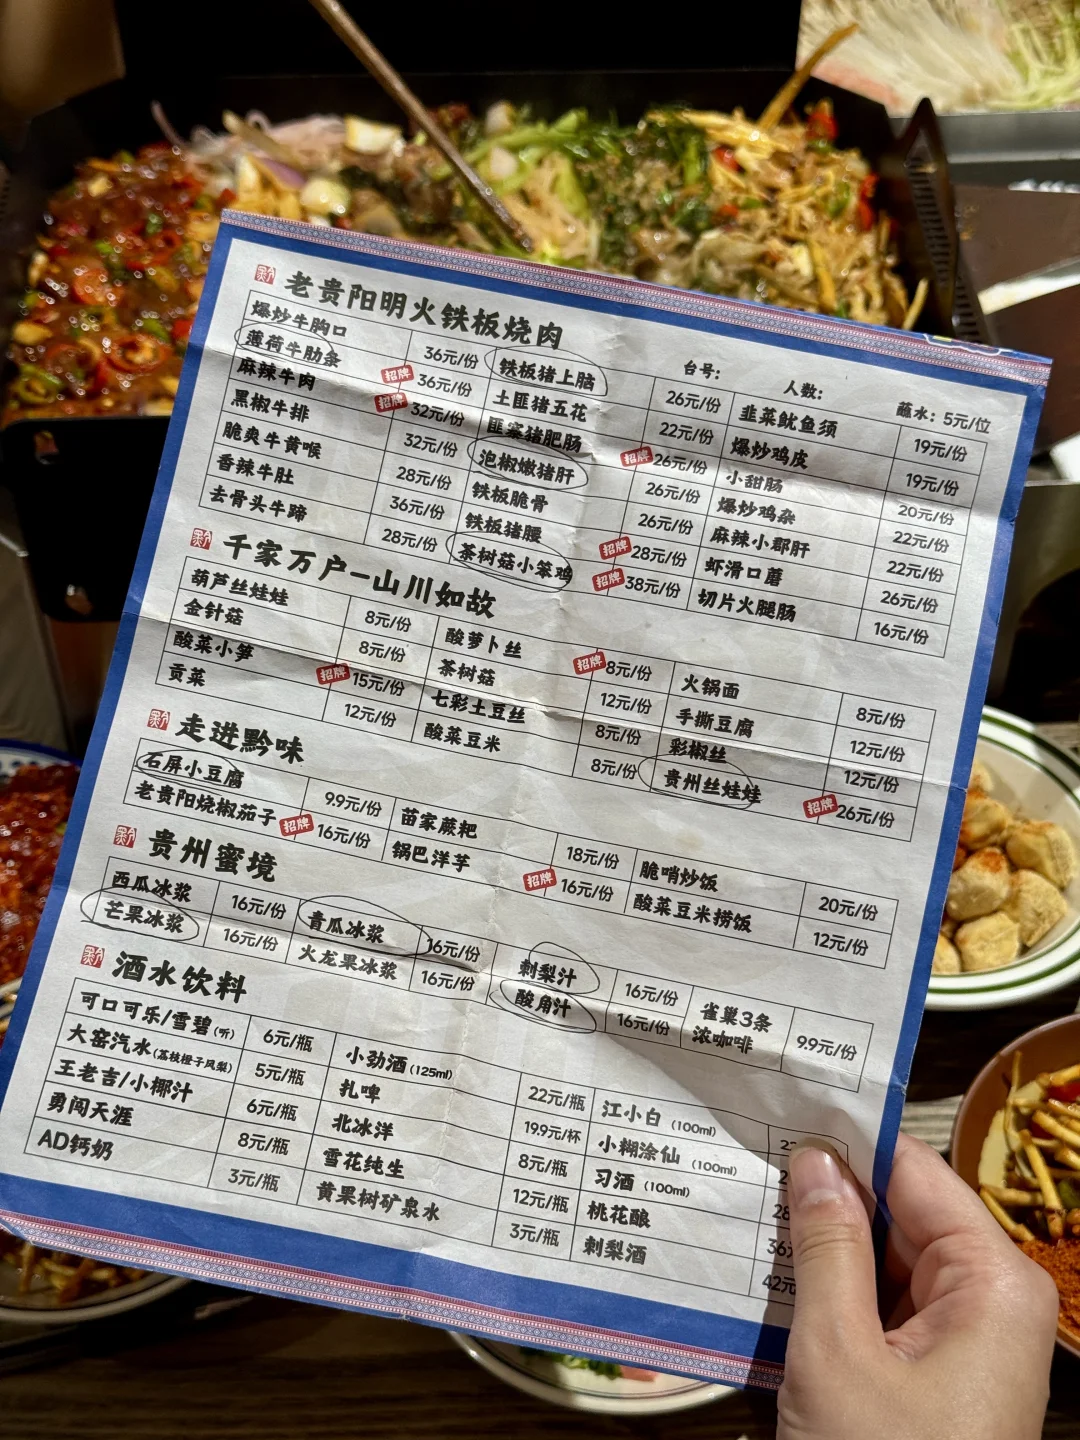 老贵阳明火铁板烧肉
台号: 人数: 蘸水: 5元/位
爆炒牛胸口 36元/份 铁板猪上脑 26元/份 韭菜鱿鱼须 19元/份
薄荷牛肋条 招牌 36元/份 土匪猪五花 22元/份 爆炒鸡皮 19元/份
麻辣牛肉 招牌 32元/份 匪寨猪肥肠 招牌 26元/份 小甜肠 20元/份
黑椒牛排 32元/份 泡椒嫩猪肝 26元/份 爆炒鸡杂 22元/份
脆爽牛黄喉 28元/份 铁板脆骨 26元/份 麻辣小郡肝 22元/份
香辣牛肚 36元/份 铁板猪腰 招牌 28元/份 虾滑口蘑 26元/份
去骨头牛蹄 28元/份 茶树菇小笨鸡 招牌 38元/份 切片火腿肠 16元/份
千家万户一山川如故
葫芦丝娃娃 8元/份 酸萝卜丝 招牌 8元/份 火锅面 8元/份
金针菇 8元/份 茶树菇 12元/份 手撕豆腐 12元/份
酸菜小笋 招牌 15元/份 七彩土豆丝 8元/份 彩椒丝 12元/份
贡菜 12元/份 酸菜豆米 8元/份 贵州丝娃娃 招牌 26元/份
走进黔味
石屏小豆腐 9.9元/份 苗家蕨粑 18元/份 脆哨炒饭 20元/份
老贵阳烧椒茄子 招牌 16元/份 锅巴洋芋 招牌 16元/份 酸菜豆米捞饭 12元/份
贵州蜜境
西瓜冰浆 16元/份 青瓜冰浆 16元/份 刺梨汁 16元/份 雀巢3条
芒果冰浆 16元/份 火龙果冰浆 16元/份 酸角汁 16元/份 浓咖啡 9.9元/份
酒水饮料
可口可乐/雪碧(听) 6元/瓶 小劲酒(125ml) 22元/瓶 江小白(100ml)
大窑汽水(荔枝橙子凤梨) 5元/瓶 扎啤 19.9元/杯 小糊涂仙(100ml)
王老吉/小椰汁 6元/瓶 北冰洋 8元/瓶 习酒(100ml) 28
勇闯天涯 8元/瓶 雪花纯生 12元/瓶 桃花酿 36元
AD钙奶 3元/瓶 黄果树矿泉水 3元/瓶 刺梨酒 42元